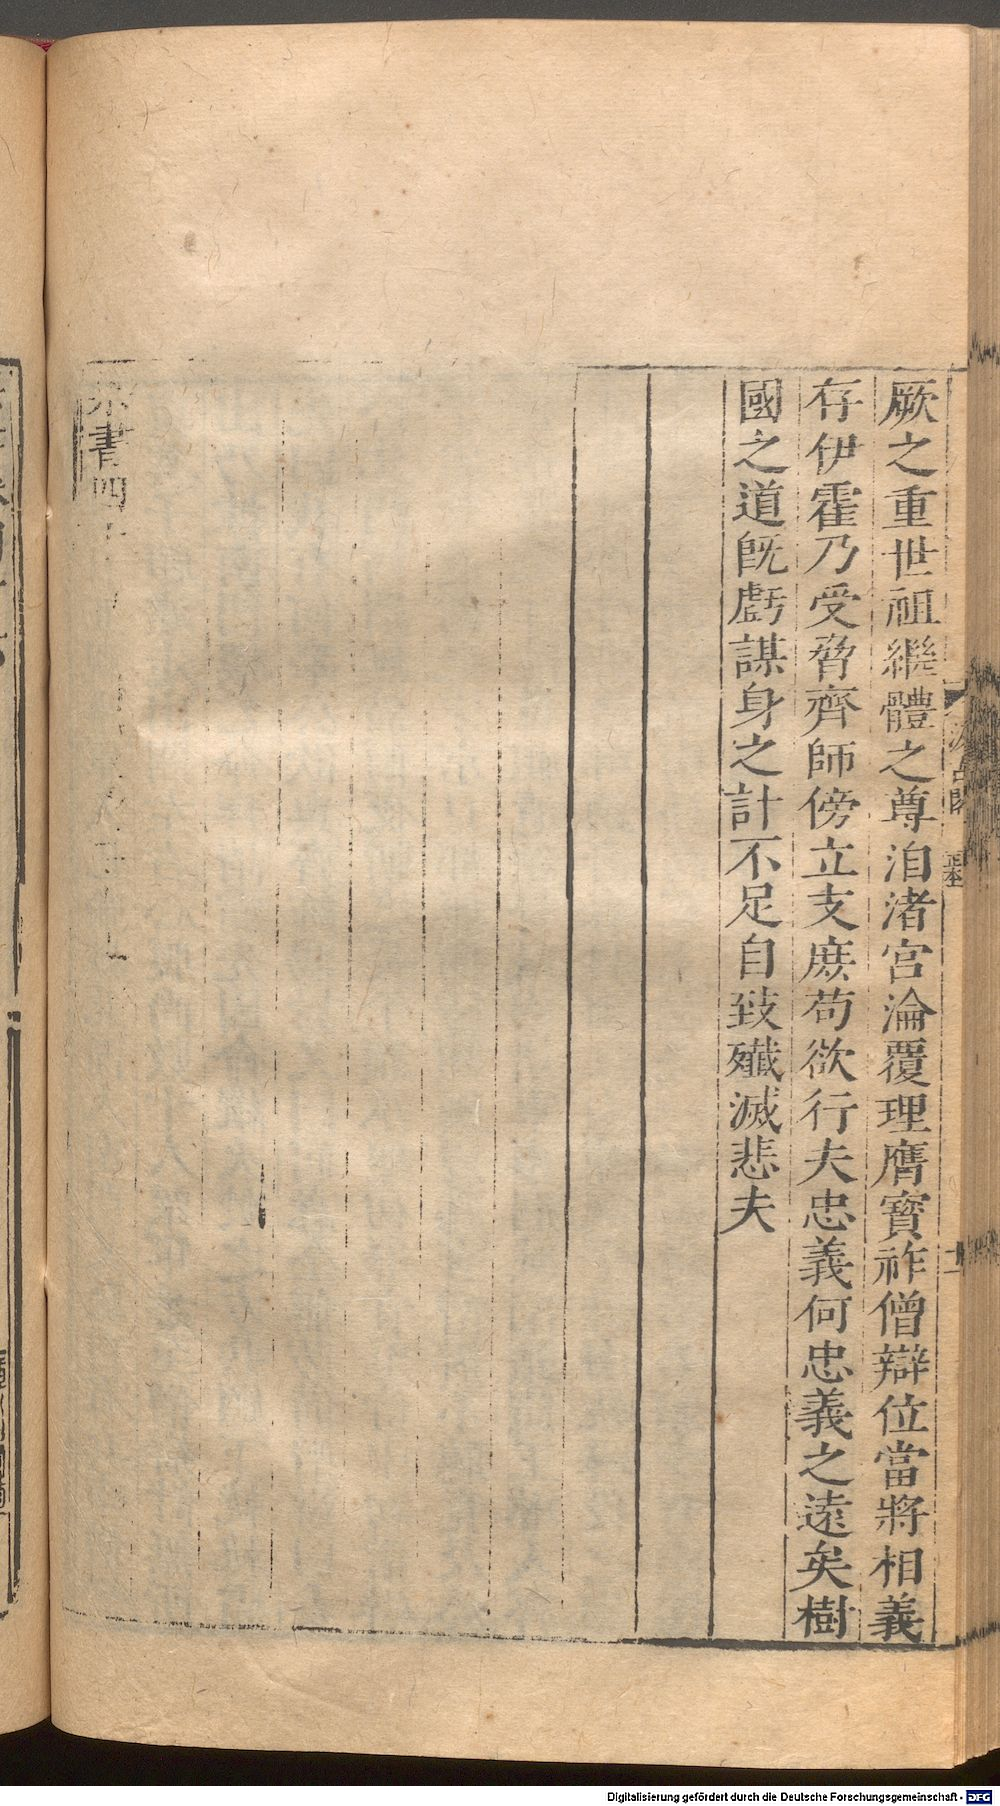 厥之重世祖繼體之尊洎渚宮淪覆理膺寶祚僧辯位當將相義
存伊霍乃受脅齊師傍立支庶苟欲行夫忠義何忠義之遠矣樹
國之道旣虧謀身之計不足自致殲滅悲夫
書四十
Digitalisierung gefördert durch die Deutsche Forschungsgemeinschaft - DFG